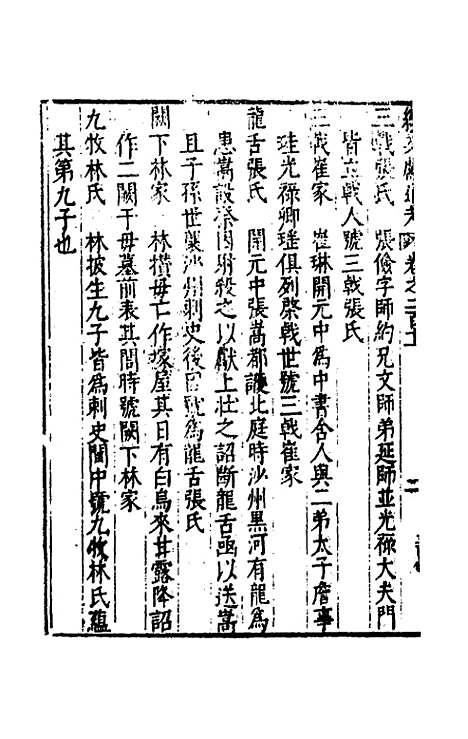 續文獻通考 卷之二百十
三戟張氏 張儉字師約兄文師弟延師並光祿大夫門
皆立戟人號三戟張氏
三戟崔家 崔琳開元中爲中書舍人與二弟太子詹事
珪光祿卿瑤俱列棨戟世號三戟崔家
龍舌張氏 開元中張嵩都護北庭時沙州黑河有龍爲
患嵩設祭因射殺之以獻上壯之詔斷龍舌函以送嵩
且子孫世襲沙州刺史後世號爲龍舌張氏
闕下林家 林攢母亡作塚屋其日有白烏來甘露降詔
作二闕于母墓前表其閭時號闕下林家
九牧林氏 林披生九子皆爲刺史閩中號九牧林氏蘊
其第九子也